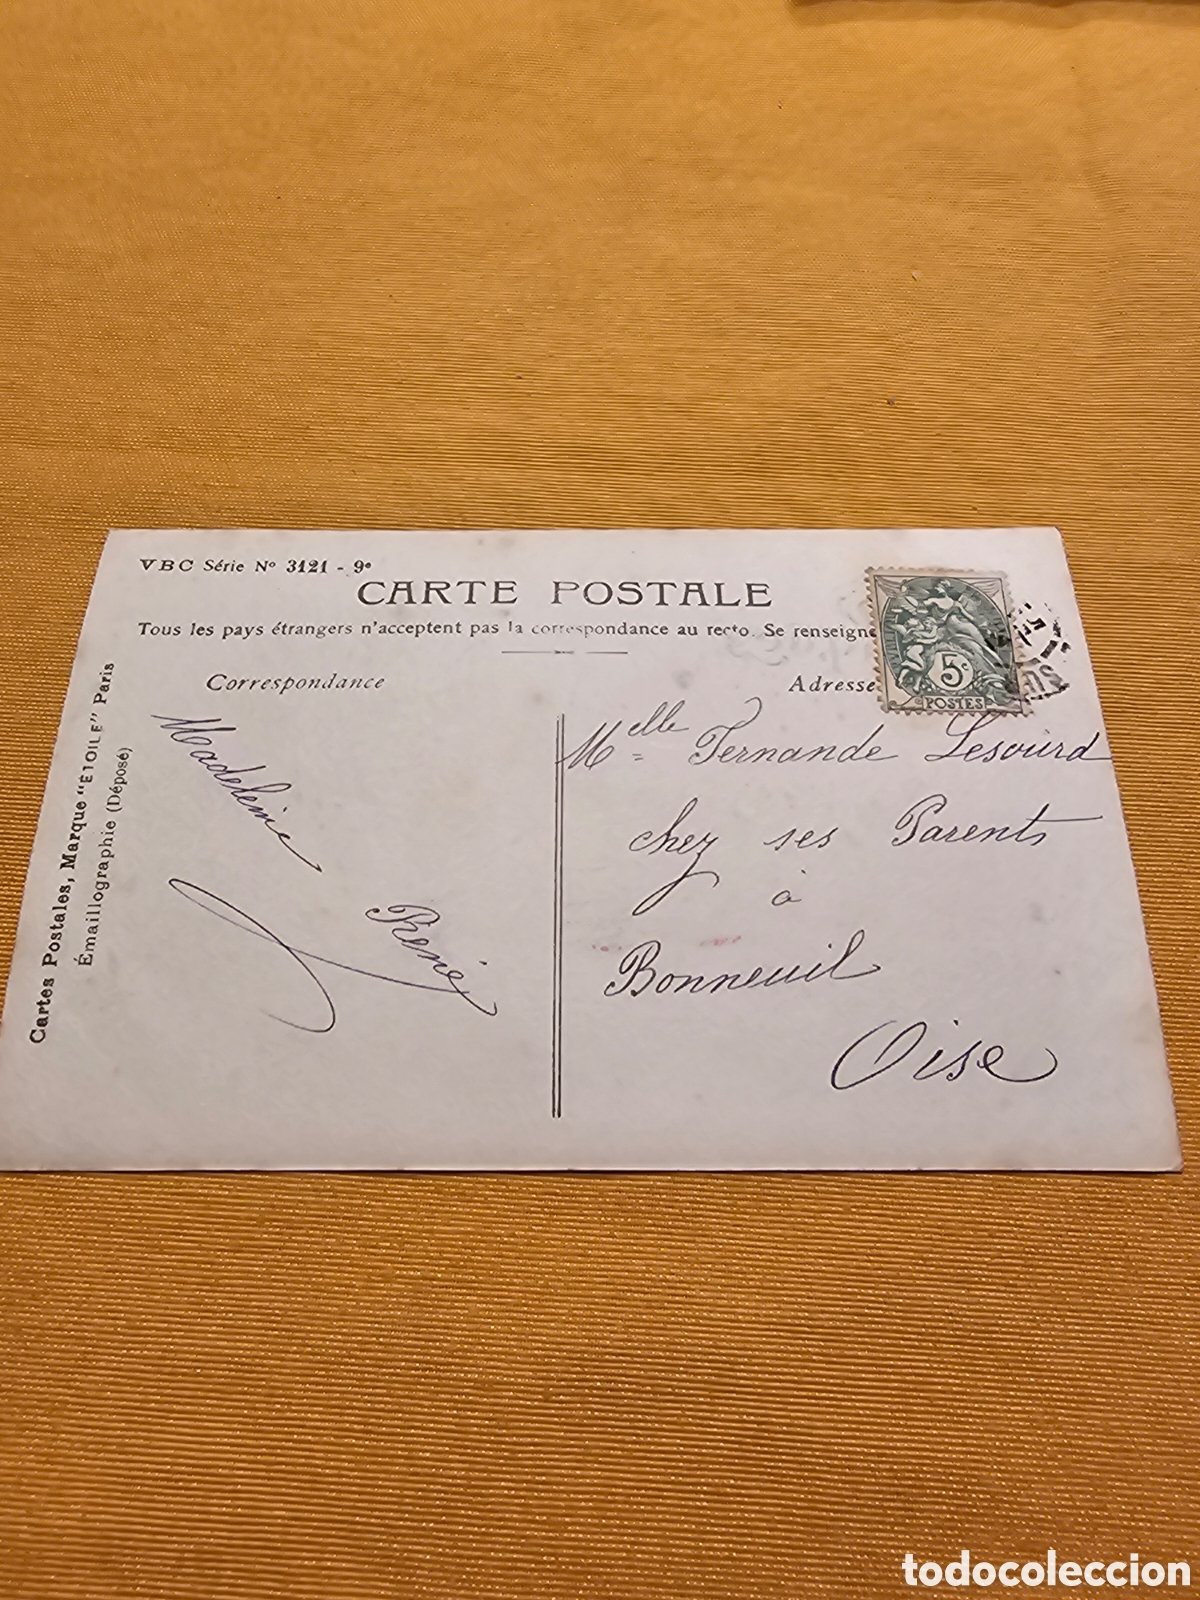 VBC Série Nº 3121 - 9e
CARTE POSTALE
Tous les pays étrangers n'acceptent pas la correspondance au recto. Se renseigne
Correspondance
Adresse
5c
POSTES
Cartes Postales, Marque "ETOILE" Paris
Émaillographie (Déposé)
Madeleine
René
Melle Fernande Lesourd
chez ses Parents
à
Bonneuil
Oise
todocoleccion